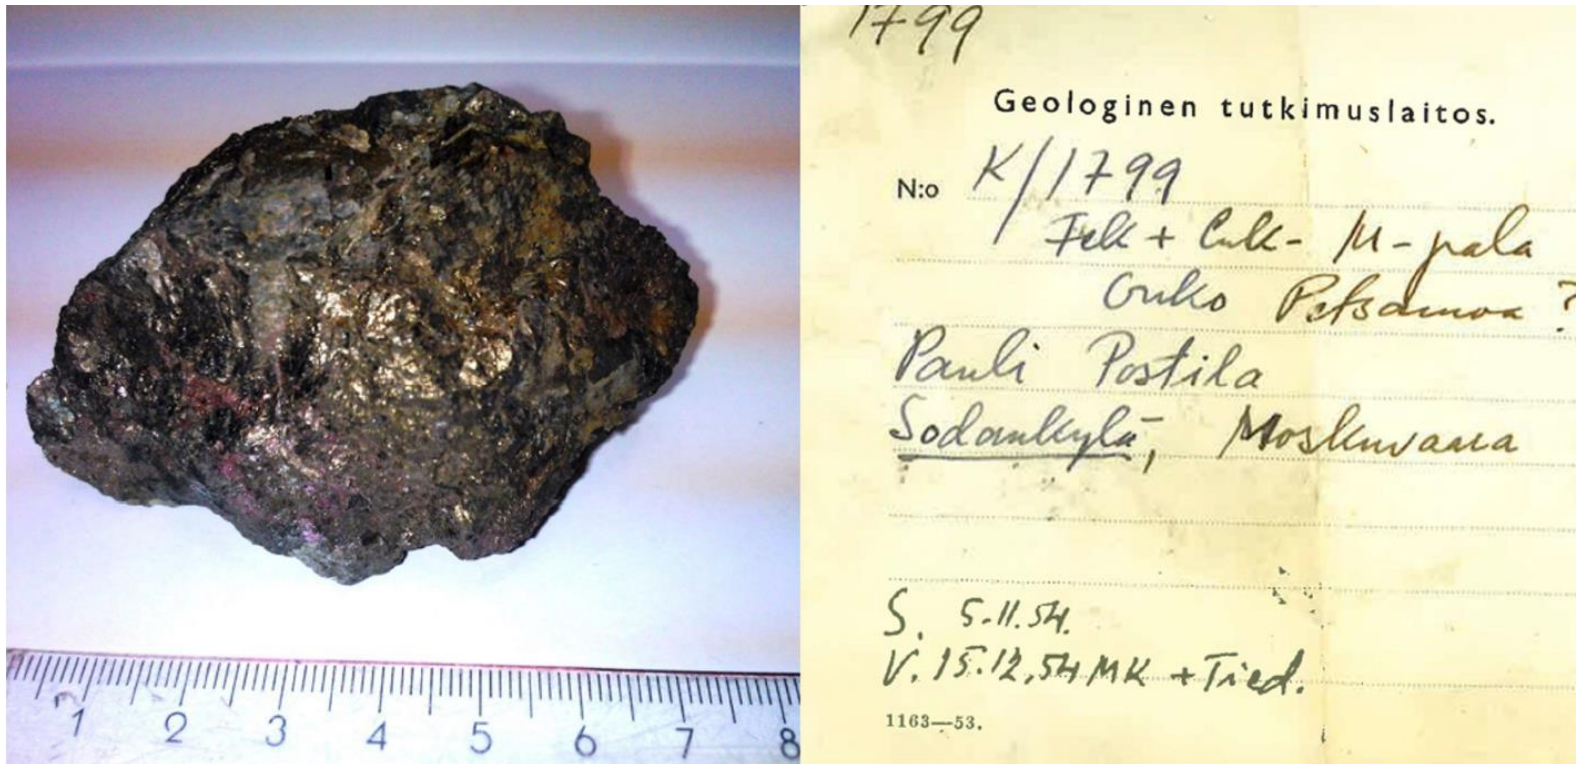 1799
Geologinen tutkimuslaitos.
N:o K/1799
Fek + Cuk - M-pala
Onko Petsamoa?
Pauli Postila
Sodankylä, Moskuvaara
S. 5.11.54.
V. 15.12.54 MK + Tied.
1163—53.
1 2 3 4 5 6 7 8